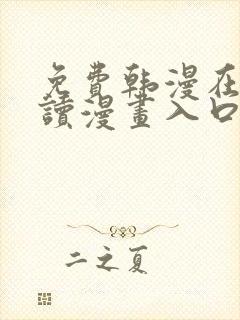 免費韩漫在
讀漫畫入口
二之夏